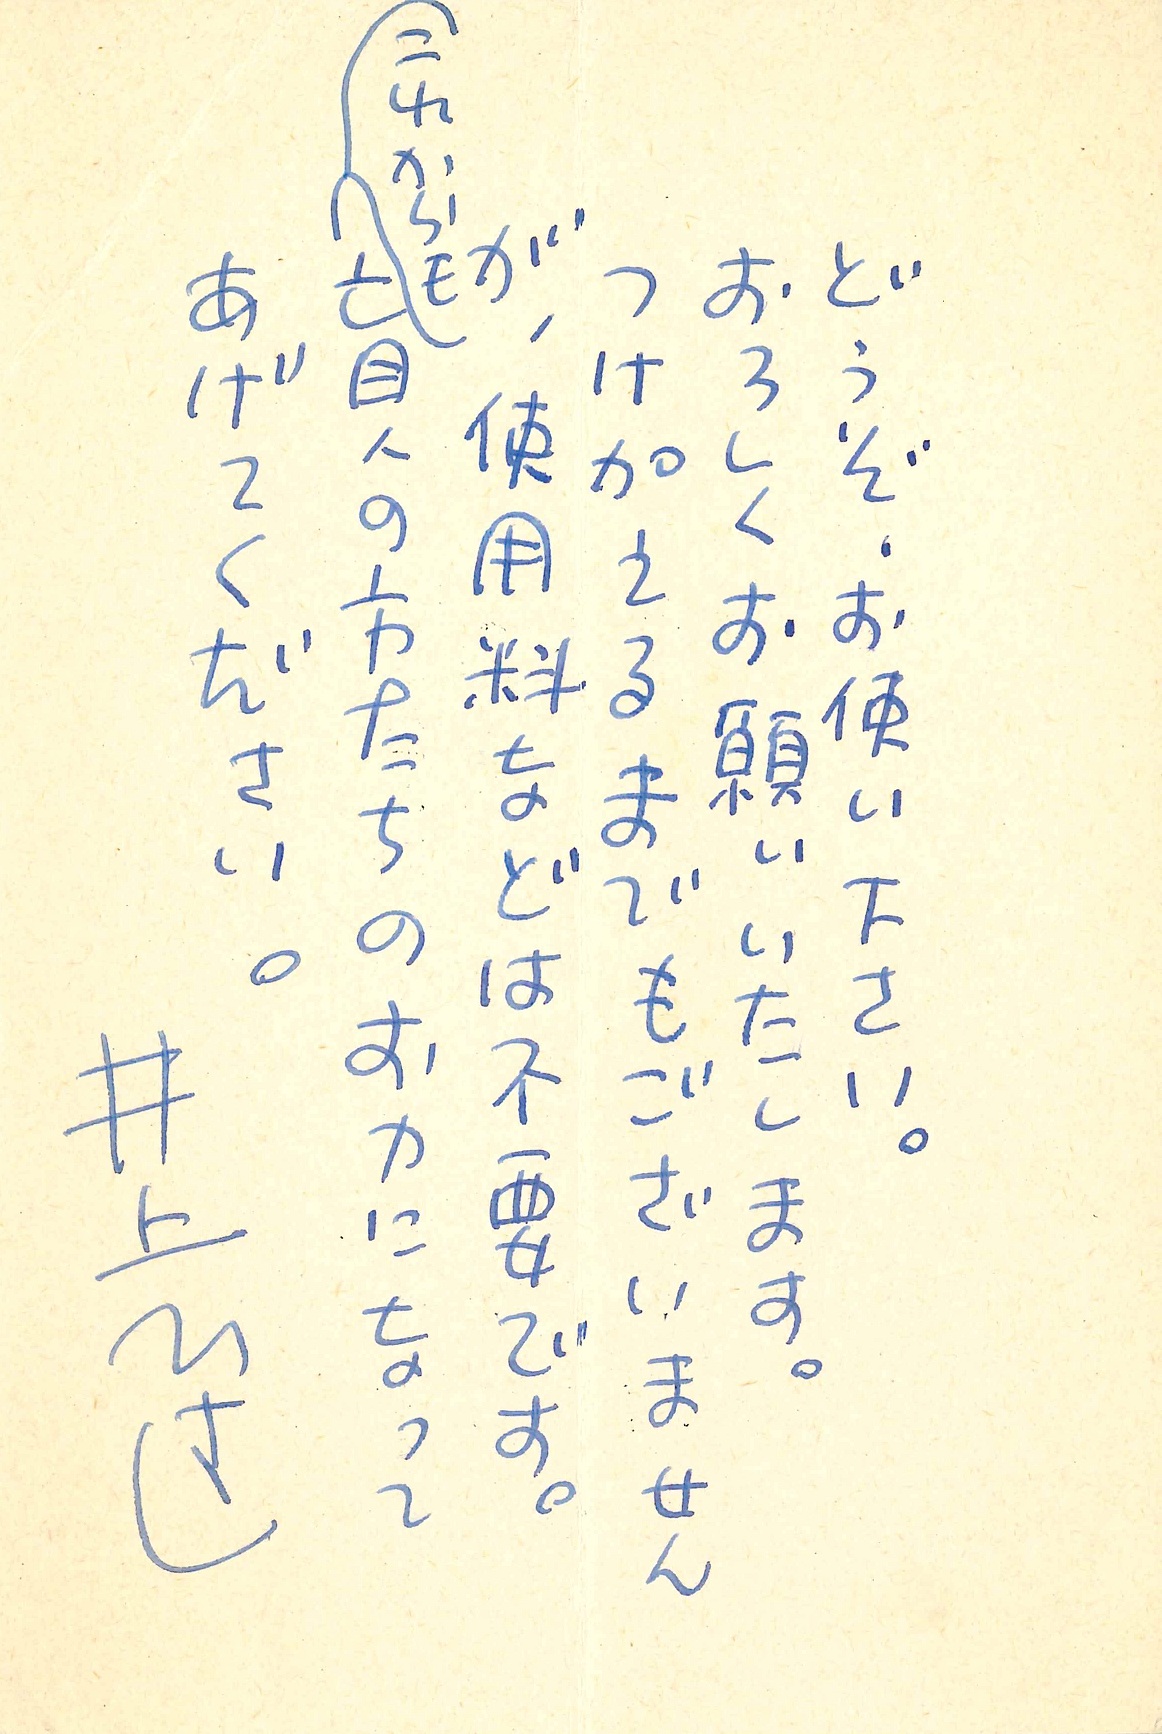 どうぞ、お使い下さい。
おろしくお願いいたします。
つけ加えるまでもございません
が、使用料などは不要です。
これからも
盲人の方たちのお力になって
あげてください。
井上ひさし